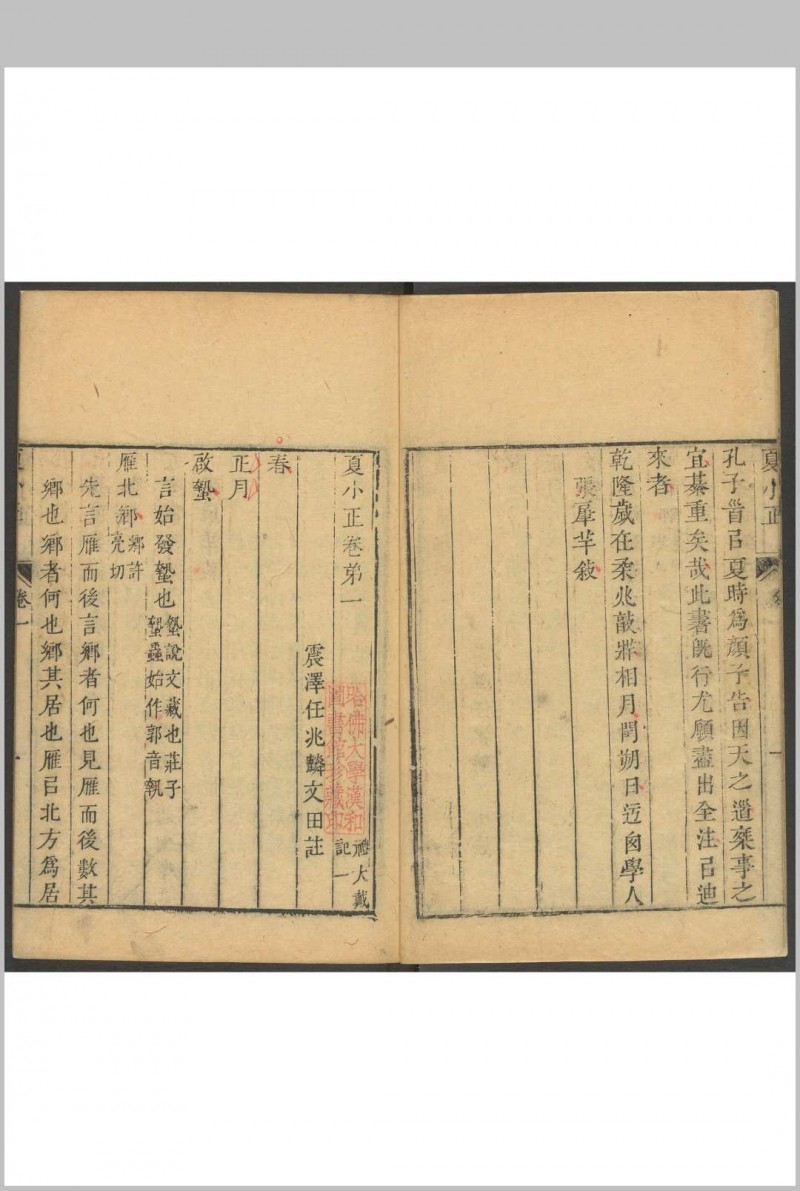 夏小正
孔子曾㠯夏時爲顏子告因天之道乘事之
宜綦重矣哉此書旣行尤願盡出全注㠯迪
來者
乾隆歲在柔兆敦牂相月閏朔日迃囪學人
張羲年敍
夏小正卷弟一
大戴
禮記一
震澤任兆麟文田註
哈佛大學漢和
圖書館珍藏印
春
正月
啟蟄
言始發蟄也 蟄說文藏也莊子
蟄蟲始作郭音執
雁北鄉 鄉許
亮切
先言雁而後言鄉者何也見雁而後數其
鄉也鄉者何也鄉其居也雁㠯北方爲居
夏小正
卷一
一